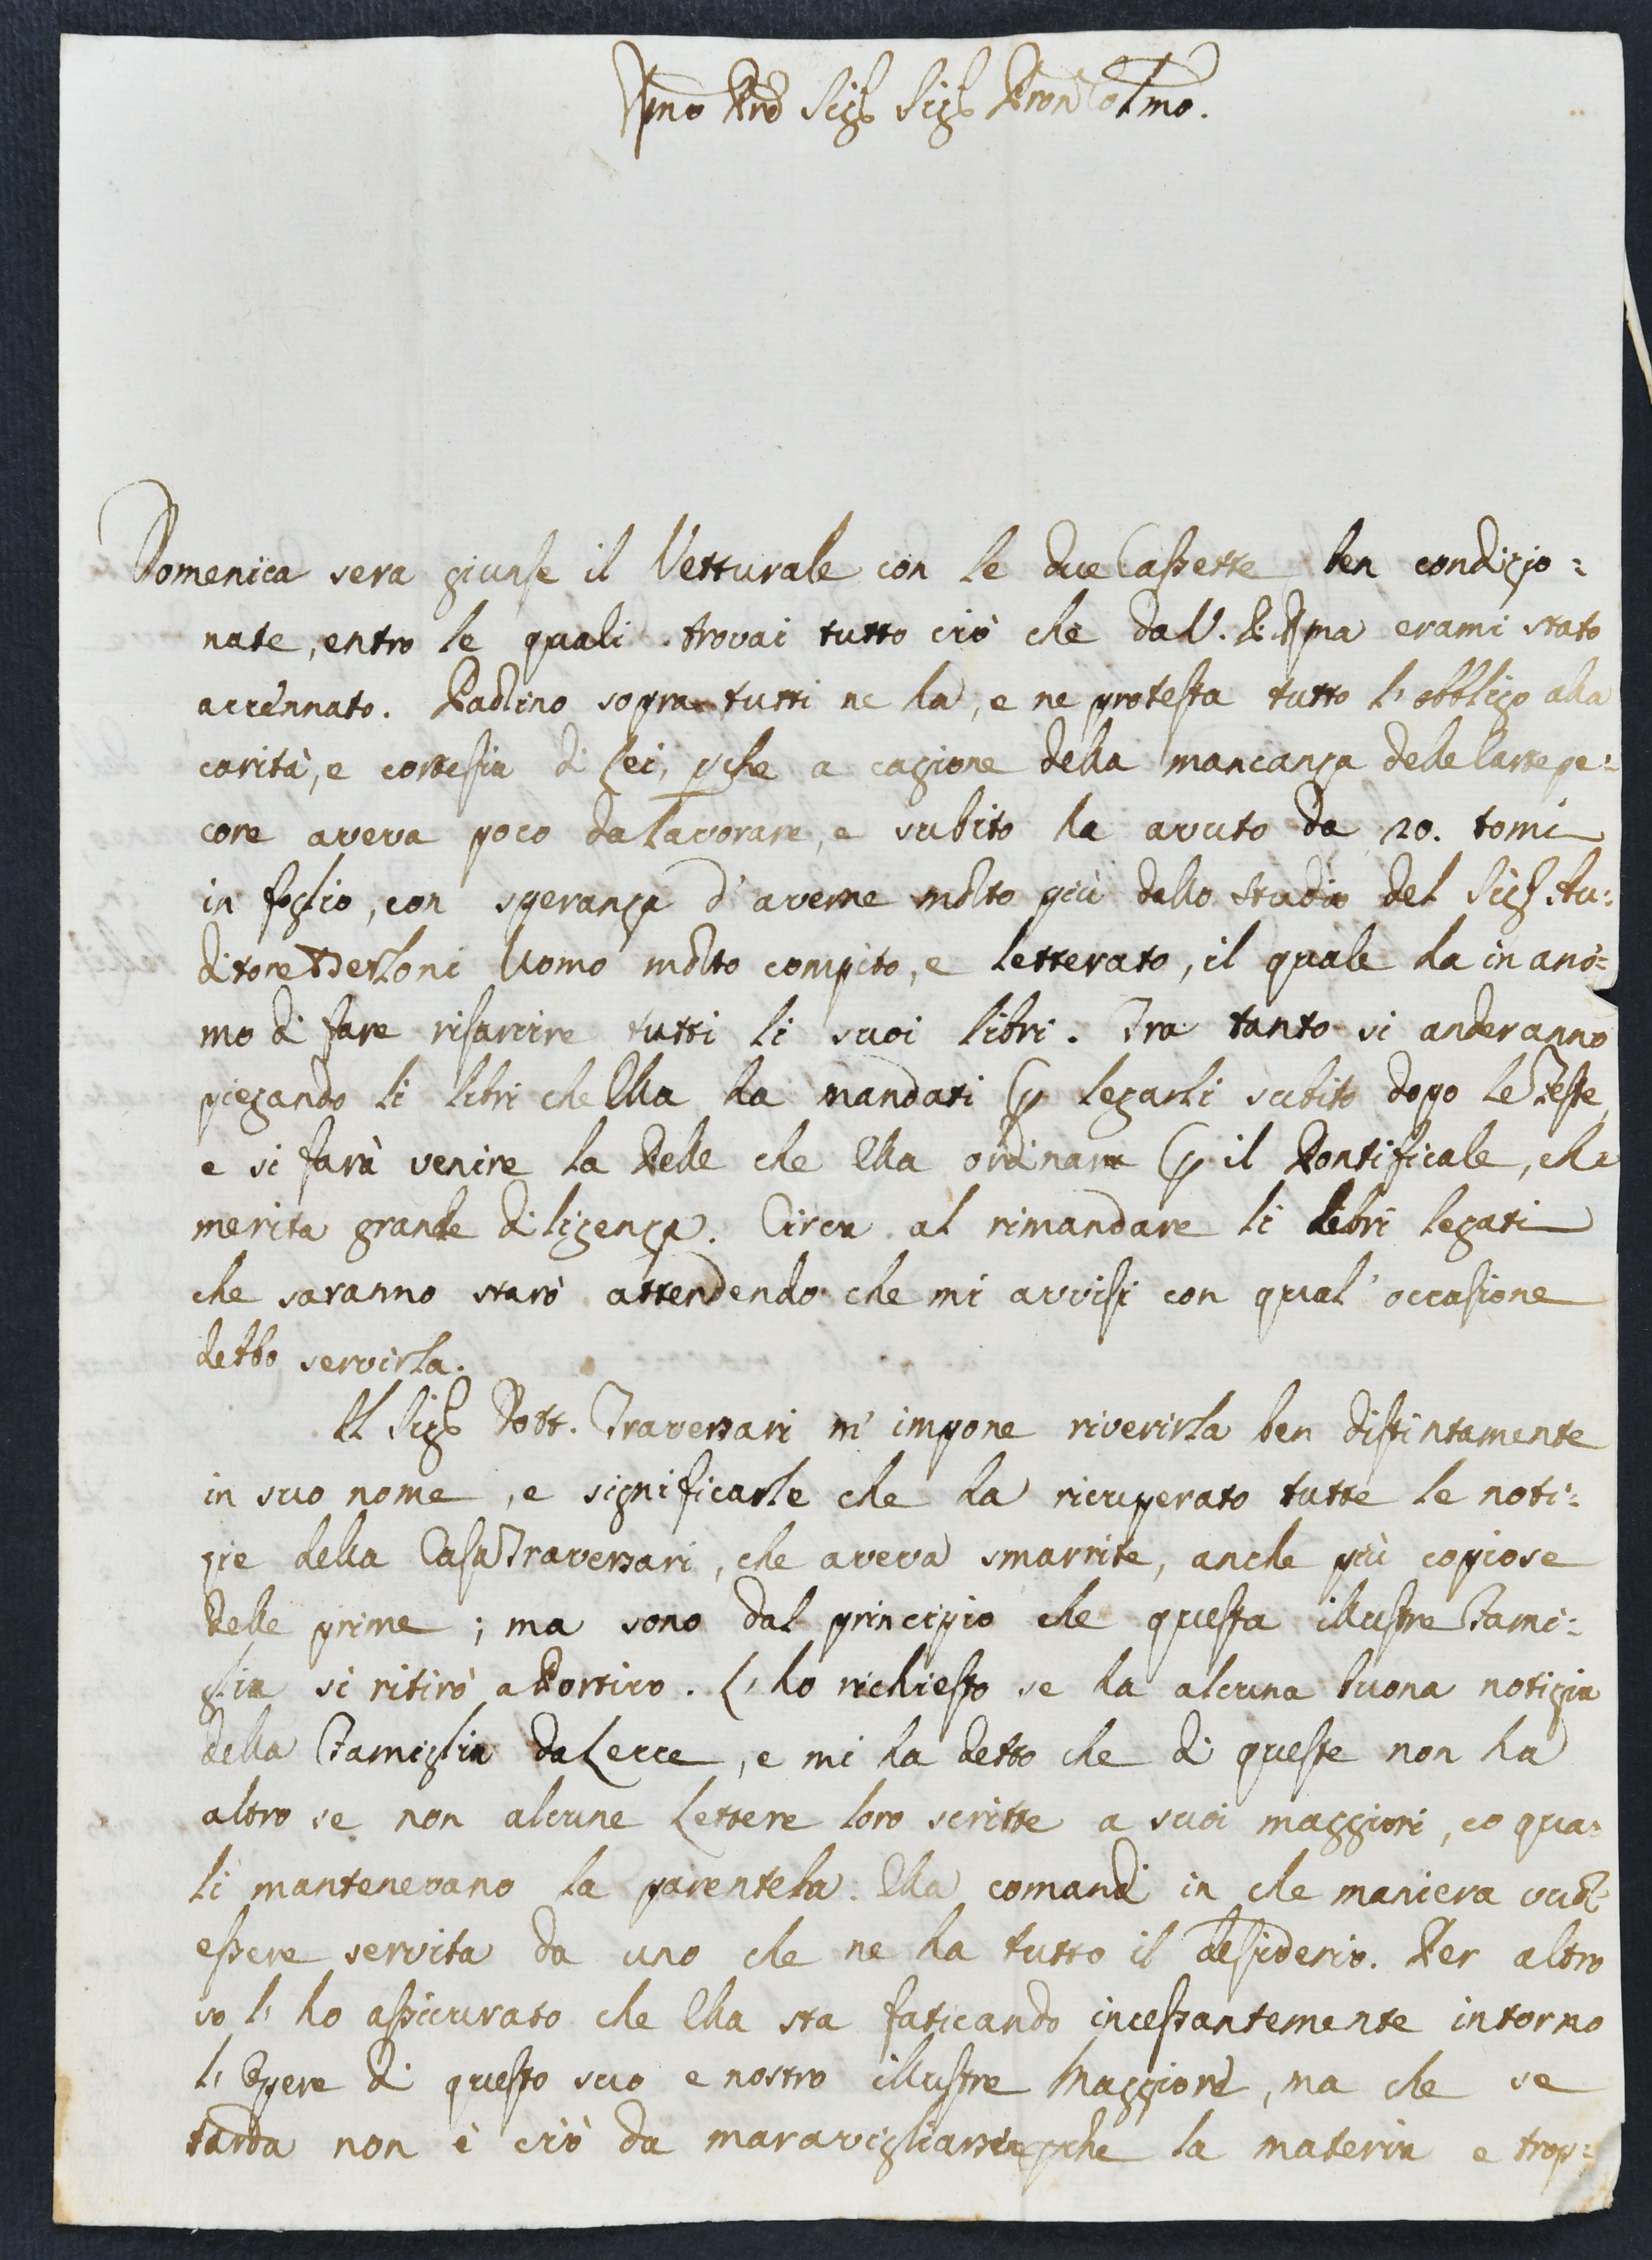 Rmo Pre Sigr Sigr Pron Colmo.
Domenica sera giunse il Vetturale con le due Cassette ben condizio=
nate, entro le quali trovai tutto ciò che da V. P. Rma erami stato
accennato. Padlino sopra tutti ne ha, e ne protesta tutto l'obbligo alla
carità, e cortesia di Lei, pche a cagione della mancanza delle Cartepe=
core aveva poco da lavorare, e subito ha avuto da 20. tomi
in foglio, con speranza d'averne molto più dallo Studio del Sigr. Au=
ditore Bertoni Uomo molto compito, e letterato, il quale ha in ani=
mo di fare risarcire tutti li suoi libri. Tra tanto si anderanno
piegando li libri che Ella ha mandati p legarli subito dopo le Feste,
e si farà venire la Pelle che Ella ordina p il Pontificale, che
merita grande diligenza. Circa al rimandare li libri legati
che saranno starò attendendo che mi avvisi con qual' occasione
debbo servirla.
Il Sigr Dott. Traversari m'impone riverirla ben distintamente
in suo nome, e significarle che ha ricuperato tutte le noti=
zie della Casa Traversari, che aveva smarrite, anche più copiose
delle prime; ma sono dal principio che questa illustre Fami=
glia si ritirò a Portico. L'ho richiesto se ha alcuna buona notizia
della Famiglia da Lecce, e mi ha detto che di queste non ha
altro se non alcune Lettere loro scritte a suoi maggiori, co qua=
li mantenevano la parentela. Ella comandi in che maniera vuol
essere servita da uno che ne ha tutto il desiderio. Per altro
io l'ho assicurato che Ella sta faticando incessantemente intorno
l'Opere di questo suo e nostro illustre Maggiore, ma che se
tarda non è ciò da maravigliarsi pche la materia e trop=